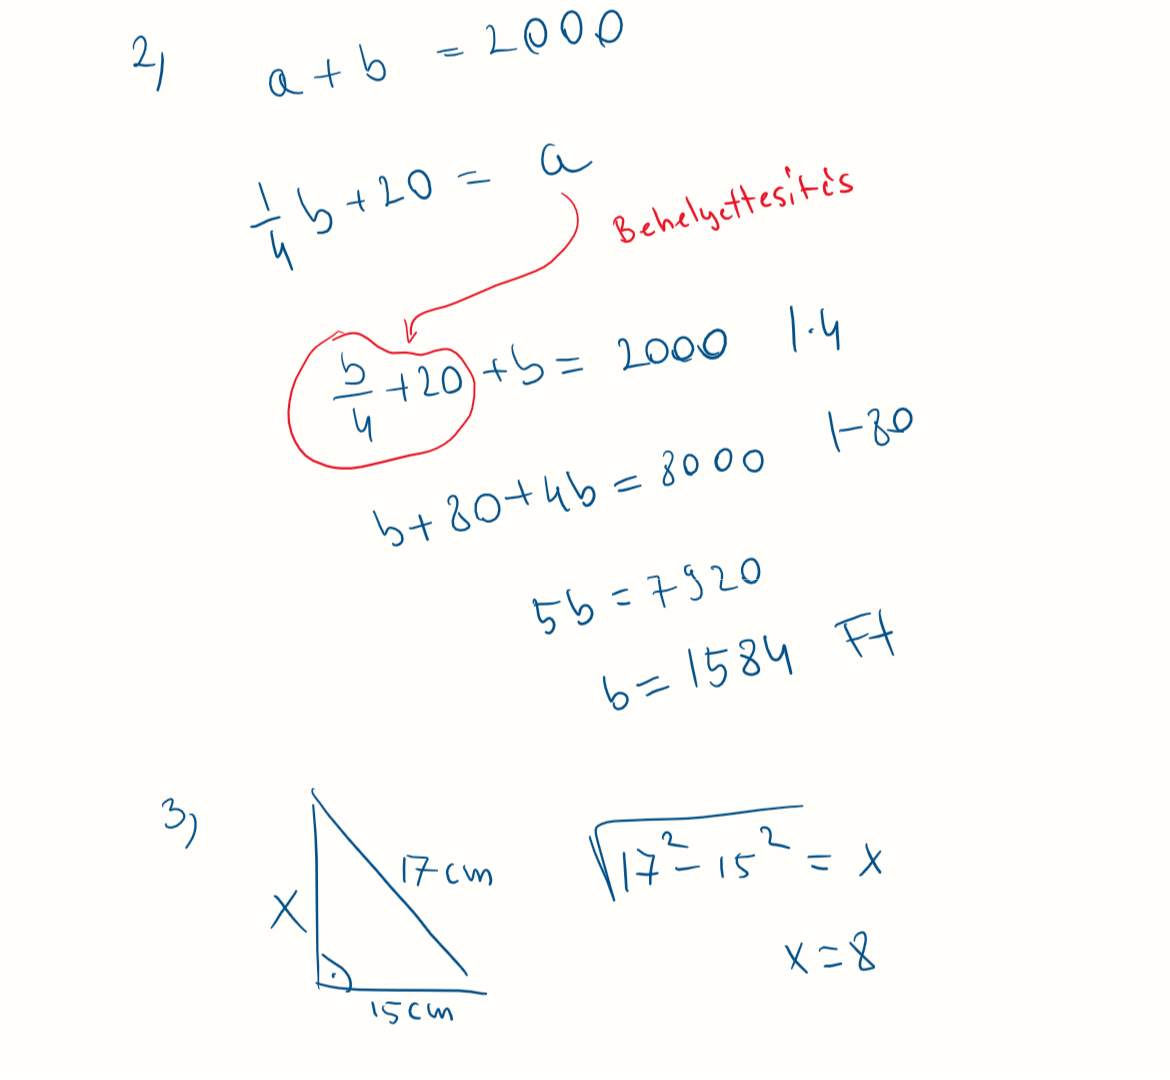 2, a + b = 2000
1/4 b + 20 = a
Behelyettesítés
b/4 + 20 + b = 2000 |·4
b + 80 + 4b = 8000 |-80
5b = 7920
b = 1584 Ft
3,
17 cm
√17² - 15² = x
x
x = 8
15 cm